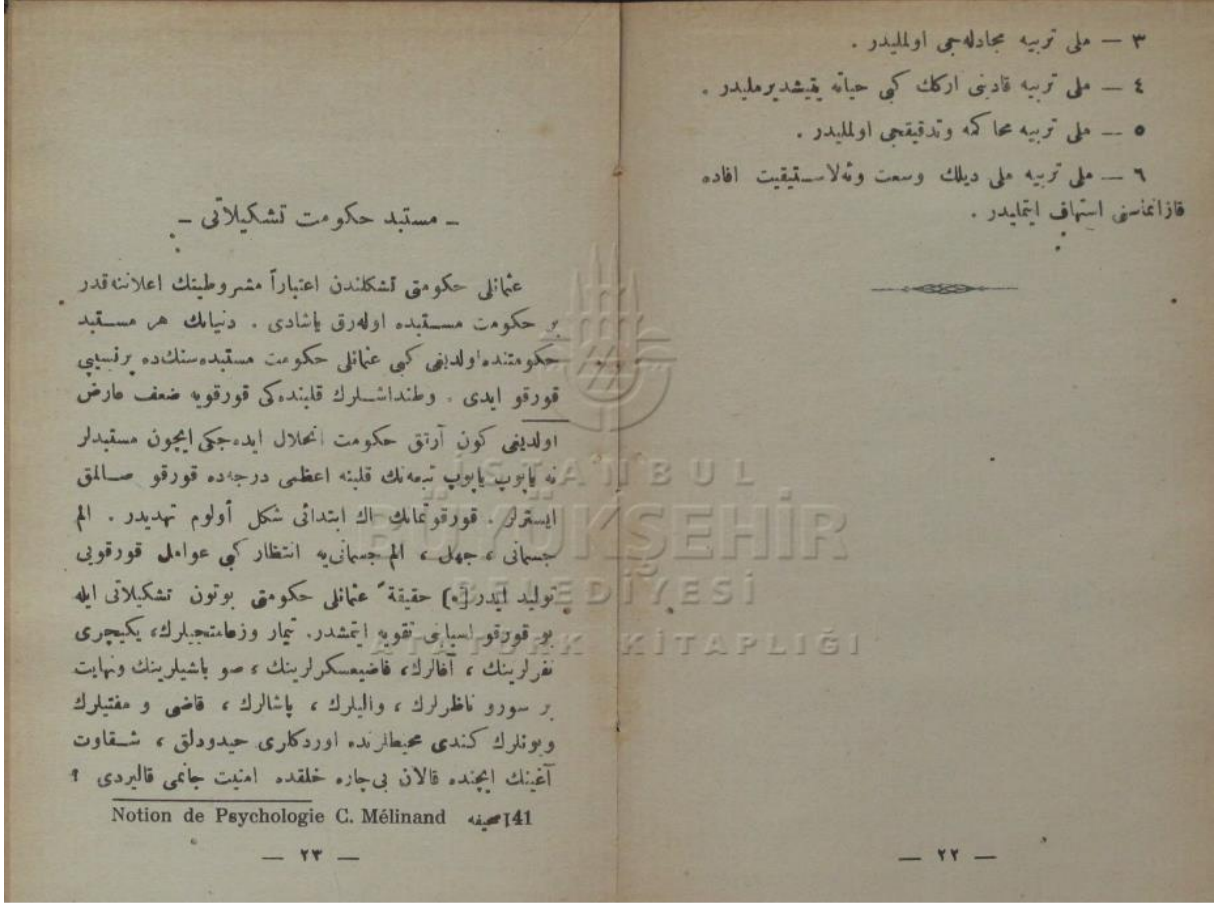 ٣ — ملی تربیه مجادله‌جی اولملیدر .
٤ — ملی تربیه قادینی ارکك کبی حیاته یتیشدیرملیدر .
٥ — ملی تربیه محاکمه وتدقیقجی اولملیدر .
٦ — ملی تربیه ملی دیلك وسعت وئه‌لاستیقیت افاده
قازانماسنی استهداف ایتملیدر .
— ٢٢ —
ـ مستبد حکومت تشکیلاتی ـ
عثمانلی حکومتی تشکلندن اعتباراً مشروطیتك اعلاننه قدر
بر حکومت مستبده اوله‌رق یاشادی . دنیانك هر مستبد
حکومتنده اولدیغی کبی عثمانلی حکومت مستبده سنك‌ده پرنسیبی
قورقو ایدی . وطنداشلرك قلبنده‌کی قورقویه ضعف عارض
اولدیغی کون آرتق حکومت انحلال ایده‌جکی ایچون مستبدلر
نه یاپوب یاپوب تبعه‌نك قلبنه اعظمی درجه‌ده قورقو صالمق
ایسترلر . قورقوتمانك اك ابتدائی شکل أولوم تهدیدر . الم
جسمانی ، جهل ، الم جسمانی‌یه انتظار کبی عوامل قورقویی
تولید ایدر [٠] حقیقةً عثمانلی حکومتی بوتون تشکیلاتی ایله
بو قورقو اسبابنی تقویه ایتمشدر. تیمار وزعامتجیلرك، یکیچری
نفرلرینك ، آغالرك، قاضیعسکرلرینك ، صو باشیلرینك ونهایت
بر سورو ناظرلرك ، والیلرك ، پاشالرك ، قاضی و مفتیلرك
وبونلرك کندی محیطلرنده اوردکلری حیدودلق ، شقاوت
آغینك ایچنده قالان بی‌چاره خلقده امنیت جانمی قالیردی ؟
Notion de Psychologie C. Mélinand صحیفه 41
— ٢٣ —
İSTANBUL
BÜYÜKŞEHİR
BELEDİYESİ
ATATÜRK KİTAPLIĞI